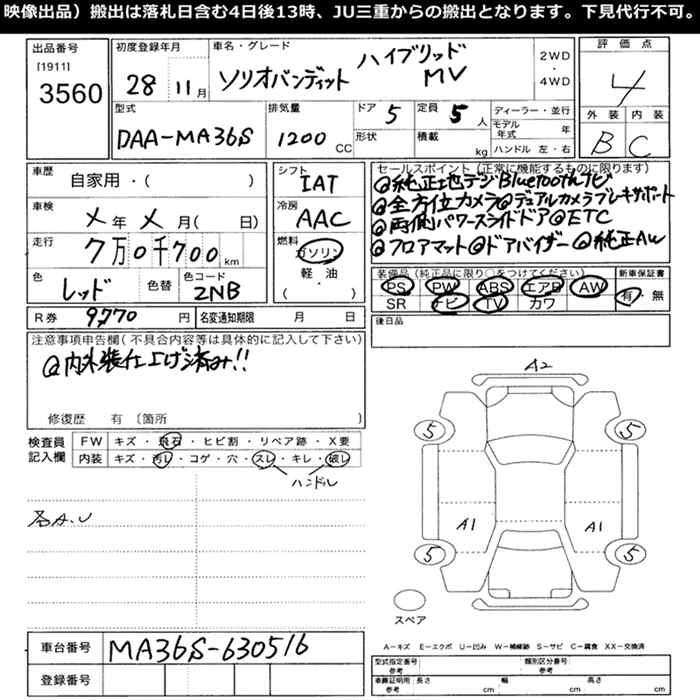 映像出品）搬出は落札日含む4日後13時、JU三重からの搬出となります。下見代行不可。
出品番号
[1911]
3560
初度登録年月
28年 11月
車名・グレード
ハイブリッド
ソリオバンディット MV
2WD
・
4WD
評価点
4
外装 内装
B C
型式
DAA-MA36S
排気量
1200 CC
ドア 5
形状
定員 5 人
積載 kg
ディーラー・並行
モデル年式 年
ハンドル 左・右
車歴
自家用・( )
車検
メ年 メ月( 日)
走行
7万0千700 km
色
レッド 色替
色コード
ZNB
シフト
IAT
冷房
AAC
燃料
ガソリン
軽・油
( )
セールスポイント（正常に機能するものに限ります）
@純正地デジBluetoothTV
@全方位カメラ@デュアルカメラブレーキサポート
@両側パワースライドドア@ETC
@フロアマット@ドアバイザー@純正AW
装備品（純正品に限り○をつけてください） 新車保証書
PS PW ABS エアB AW
SR ナビ TV カワ
有・無
後日品
R券 9,770 円 名変通知期限 月 日
注意事項申告欄（不具合内容等は具体的に記入して下さい）
@内外装仕上げ済み!!
修復歴 有 〔箇所 〕
検査員
記入欄
FW キズ・飛石・ヒビ割・リペア跡・X要
内装 キズ・汚レ・コゲ・穴・スレ・キレ・破レ
ハンドル
各A.U
A2
5 5
A1 A1
5 5
スペア
車台番号 MA36S-630516
登録番号
A－キズ E－エクボ U－凹み W－補修跡 S－サビ C－腐食 XX－交換済
型式指定番号 参考
類別区分番号 参考
車庫証明用 参考 長さ cm 幅 cm 高さ cm